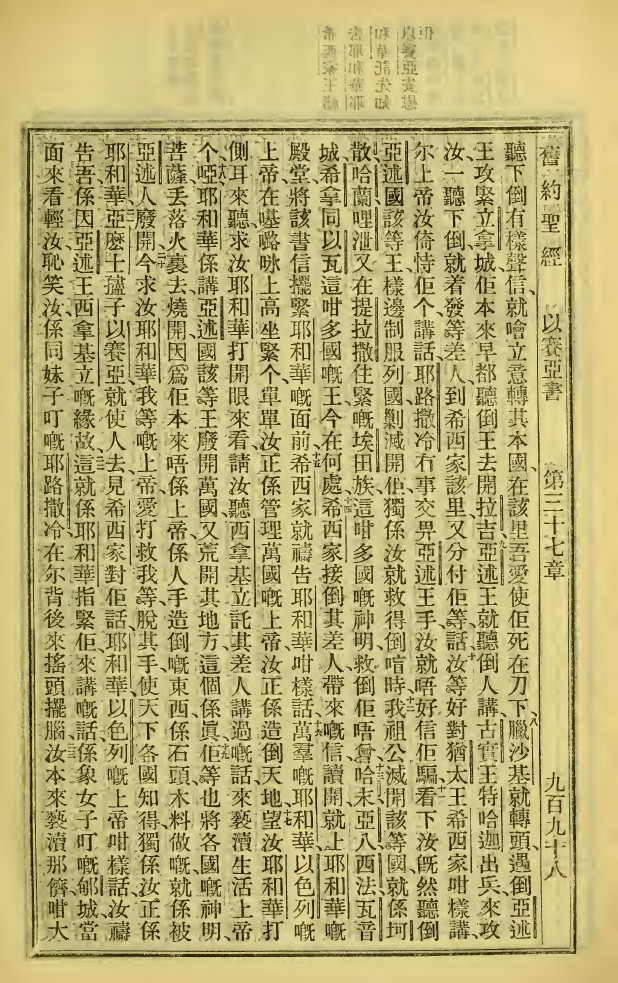 舊約聖經 以賽亞書 第三十七章 九百九十八
聽下倒有樣聲信、就噲立意轉其本國、在該里吾愛使佢死在刀下、八臘沙基就轉頭、遇倒亞述
王攻緊立拿城、佢本來早都聽倒王去開拉吉、九亞述王就聽倒人講、古實王特哈迦出兵來攻
汝、一聽下倒就着發等差人到希西家該里、又分付佢等話、十汝等好對猶太王希西家咁樣講、
尔上帝、汝倚恃佢个、講話耶路撒冷冇事交畀亞述王手、汝就唔好信佢騙、十一看下汝既然聽倒
亞述國該等王樣邊制服列國、剿滅開佢、獨係汝就救得倒唷、十二時我祖公滅開該等國、就係坷
散、哈蘭、哩泄、又在提拉撒住緊嘅埃田族、這咁多國嘅神明救倒佢唔曾、十三哈末、亞八、西法瓦音
城、希拿、同以瓦、這咁多國嘅王、今在何處、十四希西家接倒其差人帶來嘅信、讀開就上耶和華嘅
殿堂、將該書信擺緊耶和華嘅面前、十五希西家就禱告耶和華、咁樣話、十六萬羣嘅耶和華、以色列嘅
上帝、在𠸎嚕咏上高坐緊个、單單汝正係管理萬國嘅上帝、汝正係造倒天地、十七望汝耶和華打
側耳來聽、求汝耶和華打開眼來看、請汝聽西拿基立託其差人講過嘅話、來褻瀆生活上帝
个、十八啞耶和華係講、亞述國該等王廢開萬國、又荒開其地方、這個係眞、十九佢等也將各國嘅神明、
菩薩丟落火裏去燒開、因爲佢本來唔係上帝、係人手造倒嘅東西、係石頭木料做嘅、就係被
亞述人廢開、二十今求汝耶和華、我等嘅上帝、愛打救我等脫其手、使天下各國知得獨係汝正係
耶和華、二一亞麼士孻子以賽亞就使人去見希西家、對佢話、耶和華以色列嘅上帝咁樣話、汝禱
告吾、係因亞述王西拿基立嘅緣故、二二這就係耶和華指緊佢來講嘅話、係象女子叮嘅郇城當
面來看輕汝、恥笑汝、係同妹子叮嘅耶路撒冷在尔背後來搖頭擺腦、二三汝本來褻瀆那儕、咁大